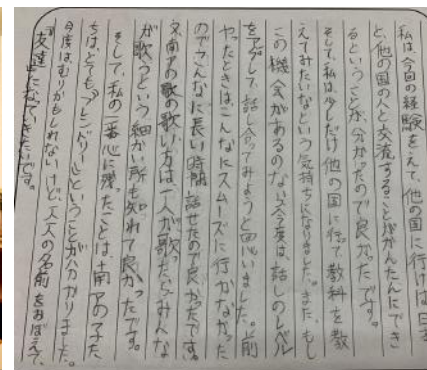 私は、今回の経験をえて、他の国に行けば日本
と、他の国の人と交流することがかんたんにでき
るということが、分かったので良かったです。
そして、私は少しだけ他の国に行って、教科を教
えてみたいなという気持ちになりました。また、もし
この機会があるのなら、今度は、話しのレベル
をアップして、話し合ってみようと思いました。前
やったときは、こんなにスムーズに行かなかった
のでこんなに長い時間話せたので良かったです。
又、南アの歌の歌い方は、一人が歌ったらみんな
が歌うという細かい所も知れて良かったです。
そして、私の一番心に残ったことは、南アの子た
ちは、とても「フレンドリー」ということが分かりました。
今度は、むりかもしれないけど、一人一人の名前をおぼえて、
「友達」になっていきたいです。